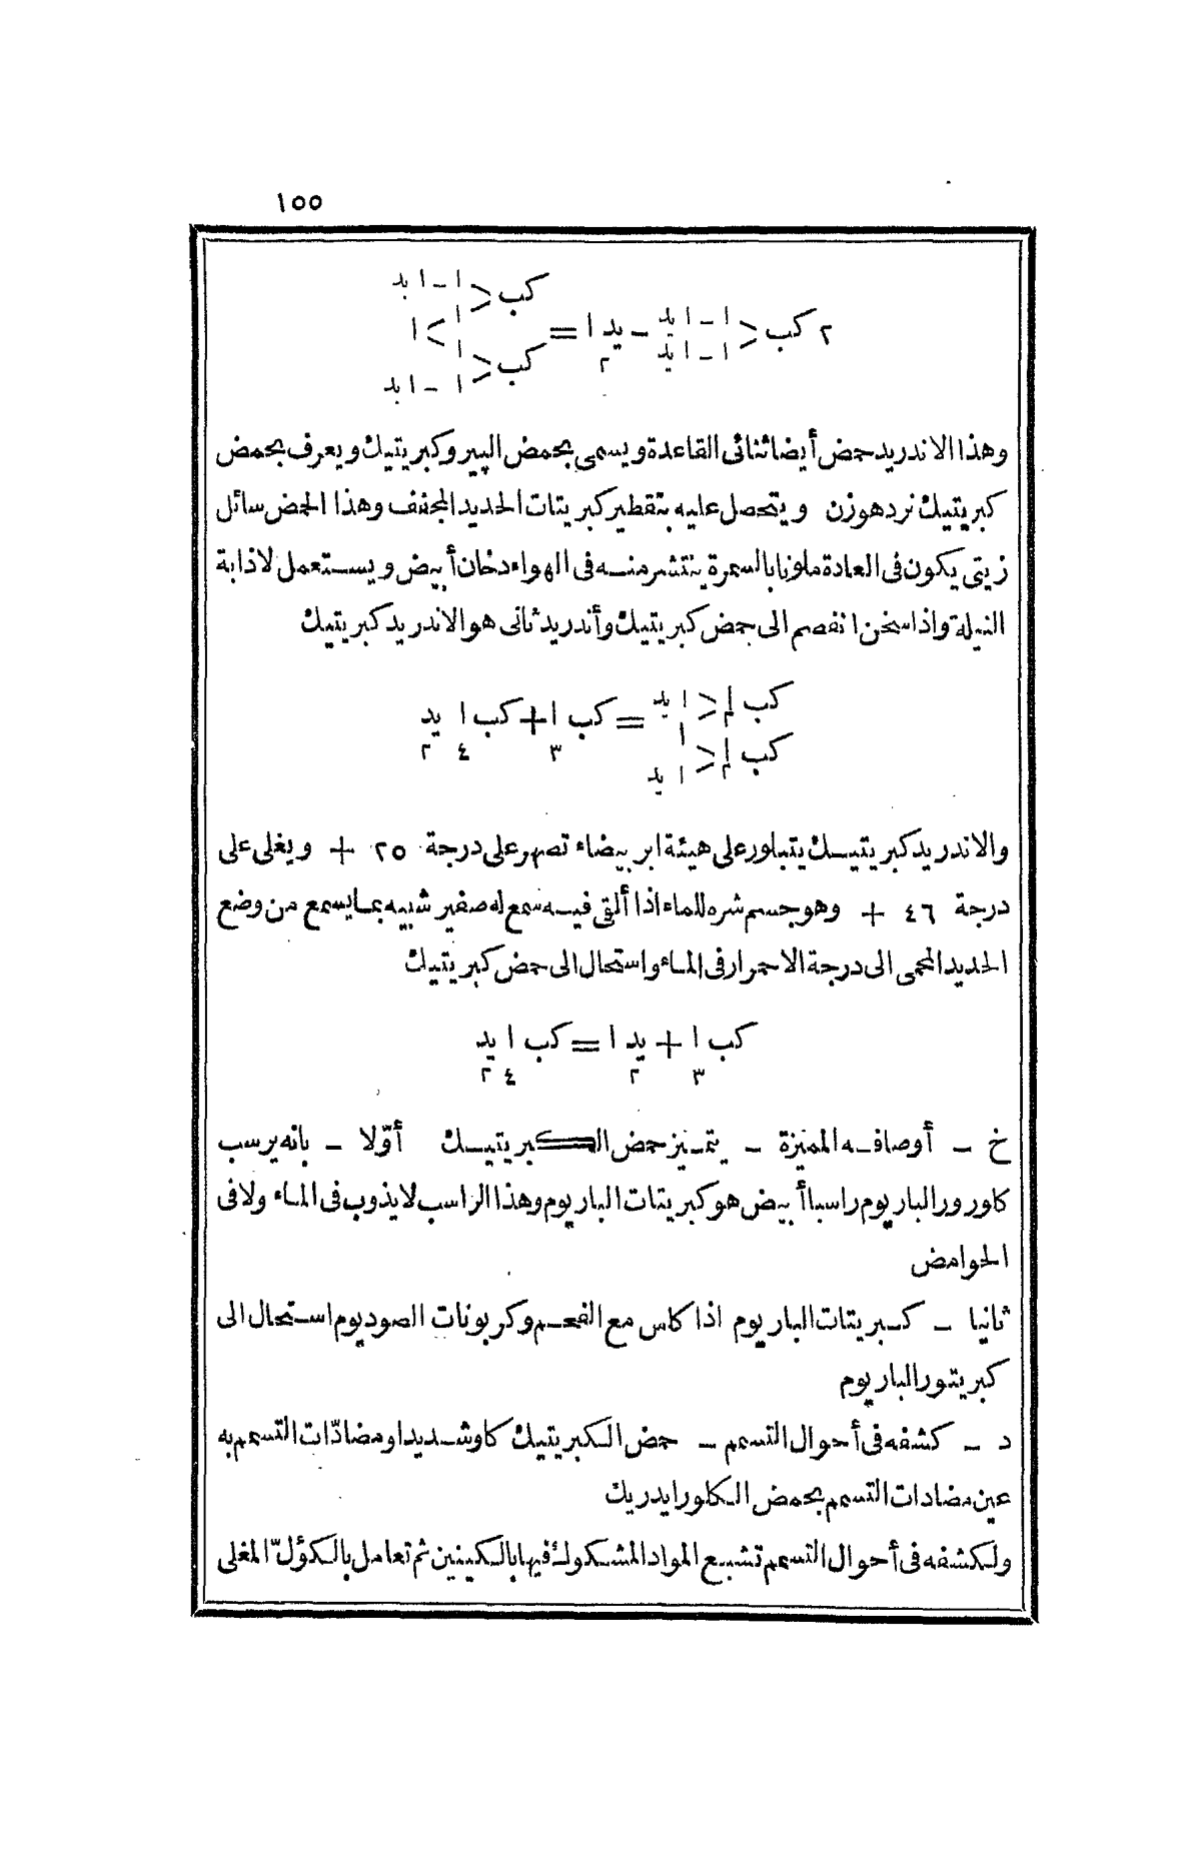 ١٥٥
ا – ا يد
كب <
٢ كب < ا – ا يد – يد ا = ا > ا
ا – ا يد ٢ ا
كب <
ا – ا يد
وهذا الاندريد حمض أيضا ثنائى القاعدة ويسمى بحمض الپيروكبريتيك ويعرف بحمض
كبريتيك نردهوزن ويتحصل عليه بتقطير كبريتات الحديد المجفف وهذا الحمض سائل
زيتى يكون فى العادة ملونا بالسمرة ينتشر منه فى الهواء دخان أبيض ويستعمل لاذابة
النيلة واذا سخن انفصم الى حمض كبريتيك وأندريد ثانى هو الاندريد كبريتيك
كب ا < ا يد
٢ ا = كب ا + كب ا يد
كب ا < ٣ ٤ ٢
٢ ا يد
والاندريد كبريتيك يتبلور على هيئة ابر بيضاء تصهر على درجة ٢٥ + ويغلى على
درجة ٤٦ + وهو جسم شره للماء اذا ألقى فيه سمع له صفير شبيه بما يسمع من وضع
الحديد المحمى الى درجة الاحمرار فى الماء واستحال الى حمض كبريتيك
كب ا + يد ا = كب ا يد
٣ ٢ ٤ ٢
خ – أوصافه المميزة – يتميز حمض الكبريتيك أوّلا – بانه يرسب
كاورور الباريوم راسبا أبيض هو كبريتات الباريوم وهذا الراسب لا يذوب فى الماء ولا فى
الحوامض
ثانيا – كبريتات الباريوم اذا كاس مع الفحم وكربونات الصوديوم استحال الى
كبريتور الباريوم
د – كشفه فى أحوال التسمم – حمض الكبريتيك كاو شديد او مضادّات التسمم به
عين مضادات التسمم بحمض الكلورايدريك
ولكشفه فى أحوال التسمم تشبع المواد المشكوك فيها بالكينين ثم تعامل بالكؤلّ المغلى